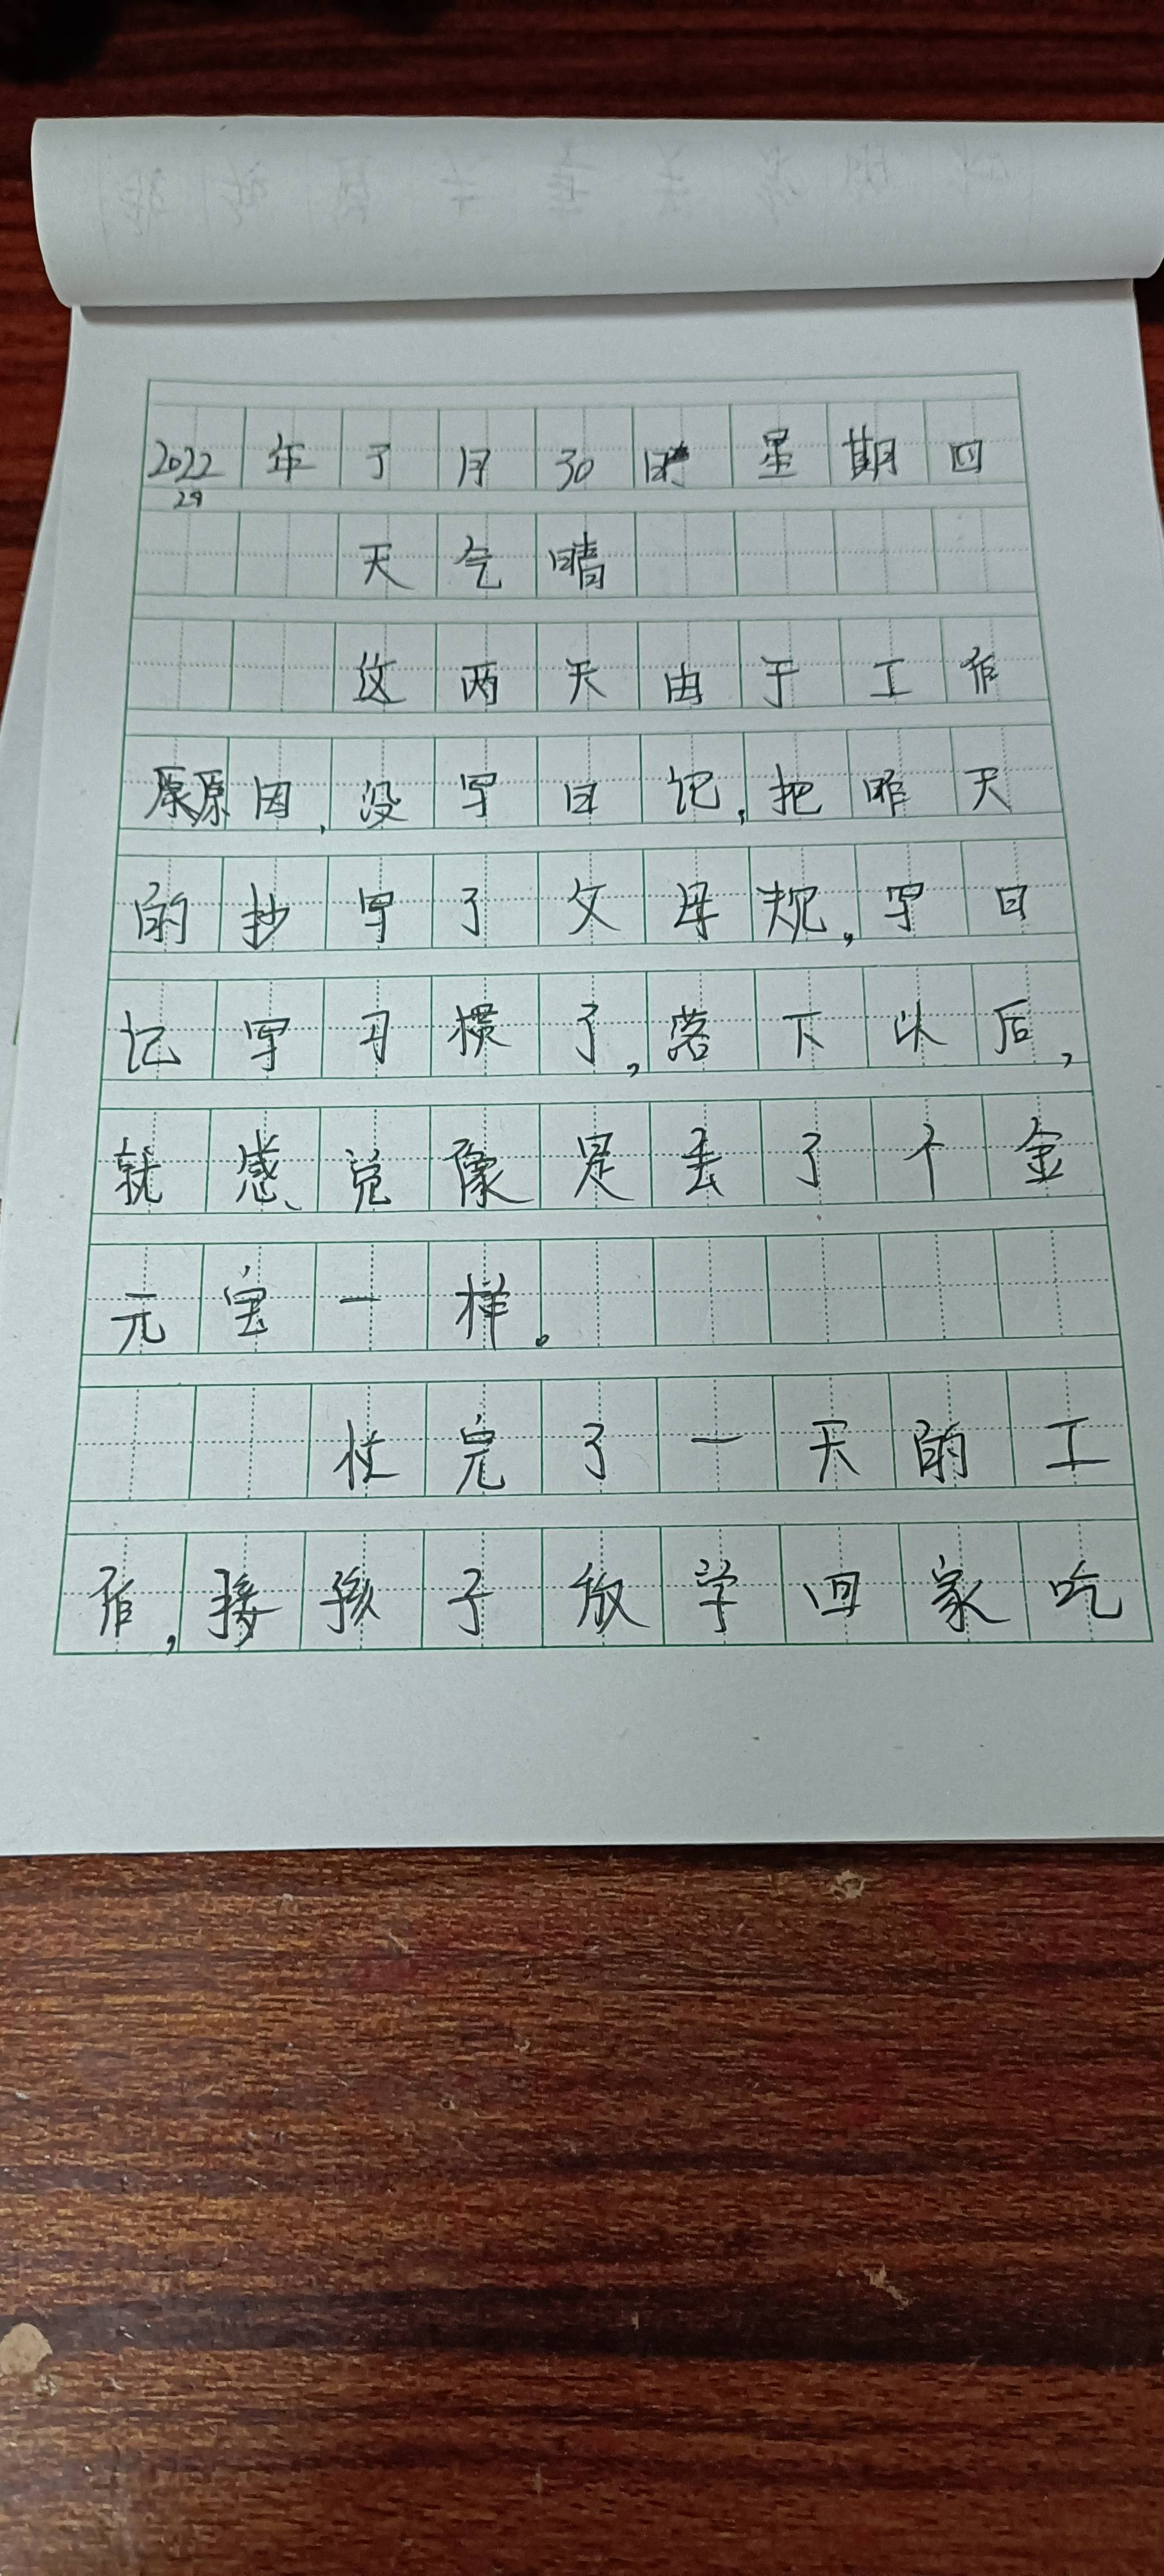 2022年了月30日星期四
29
天气晴
这两天由于工作
原原因,没写日记,把昨天
的抄写了父母规,写日
记写习惯了,落下以后,
就感觉像是丢了个金
元宝一样。
忙完了一天的工
作,接孩子放学回家吃